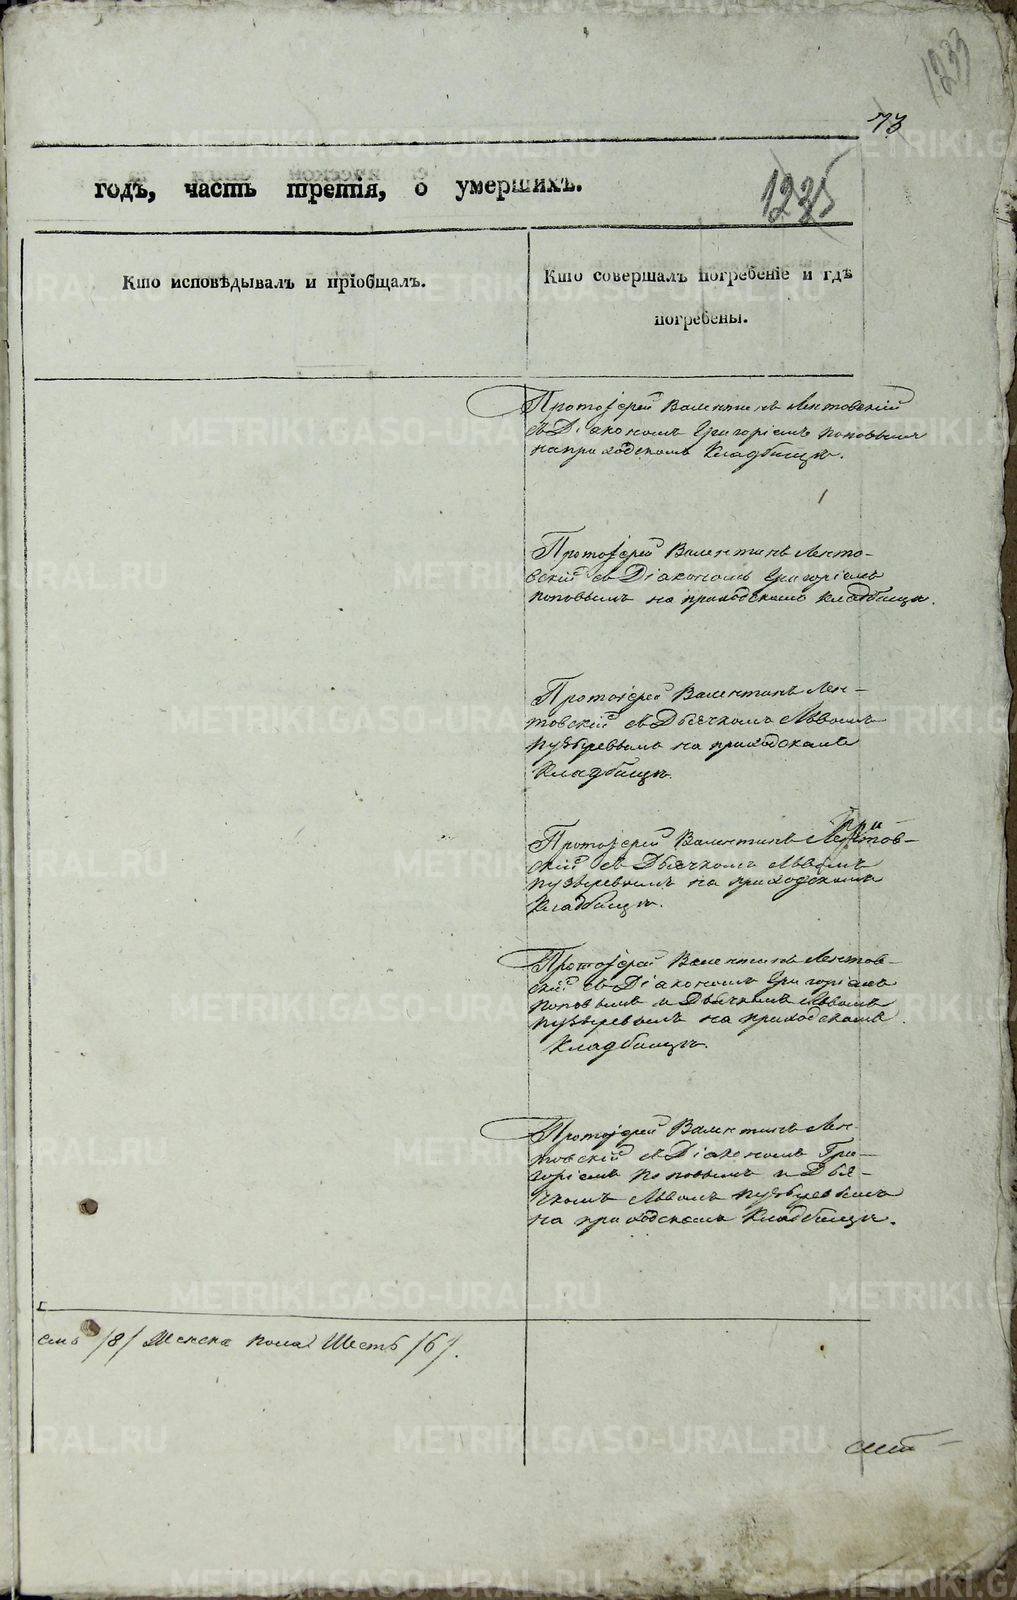 1233
73
годъ, часть третія, о умершихъ.
1235
Кто исповѣдывалъ и пріобщалъ.
Кто совершалъ погребеніе и гдѣ
погребены.
Протоіерей Валентинъ Лентовскій
съ Діакономъ Григоріемъ Поповымъ
на приходскомъ Кладбищѣ.
Протоіерей Валентинъ Ленто-
вскій съ Діакономъ Григоріемъ
Поповымъ на приходскомъ кладбищѣ.
Протоіерей Валентинъ Лен-
товскій съ Дьячкомъ Львомъ
Пузыревымъ на приходскомъ
Кладбищѣ.
Протоіерей Валентинъ Лентов-
скій съ Дьячкомъ Львомъ
Пузыревымъ на приходскомъ
Кладбищѣ.
Протоіерей Валентинъ Лентов-
скій съ Діакономъ Григоріемъ
Поповымъ и Дьячкомъ Львомъ
Пузыревымъ на приходскомъ
Кладбищѣ.
Протоіерей Валентинъ Лен-
товскій съ Діакономъ Гри-
горіемъ Поповымъ и Дья-
чкомъ Львомъ Пузыревымъ
на приходскомъ Кладбищѣ.
емь /8/ Женска пола Шесть /6/.
METRIKI.GASO-URAL.RU